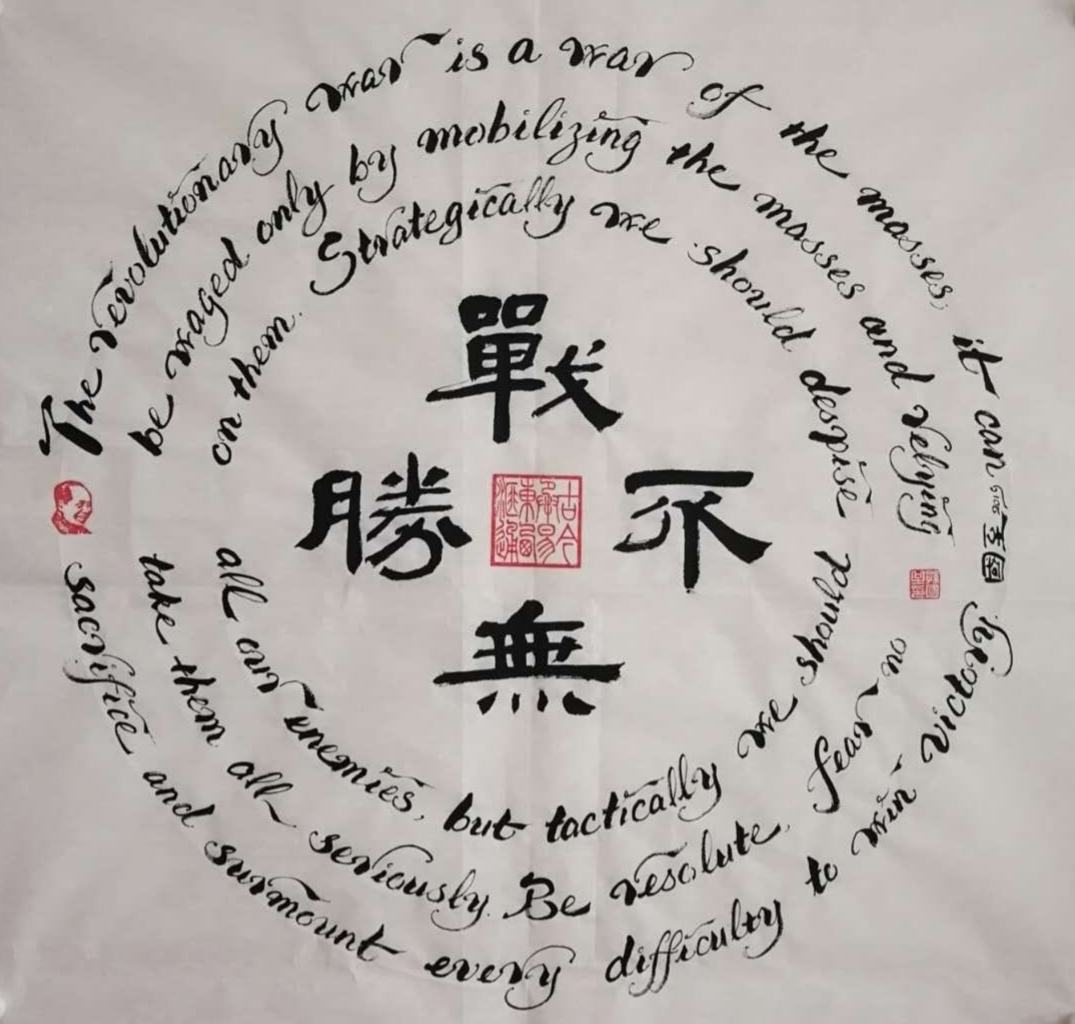 The revolutionary war is a war of the masses, it can
be waged only by mobilizing the masses and relying
on them. Strategically we should despise
all our enemies, but tactically we should
take them all seriously. Be resolute, fear no
sacrifice and surmount every difficulty to win victory
戰無不勝